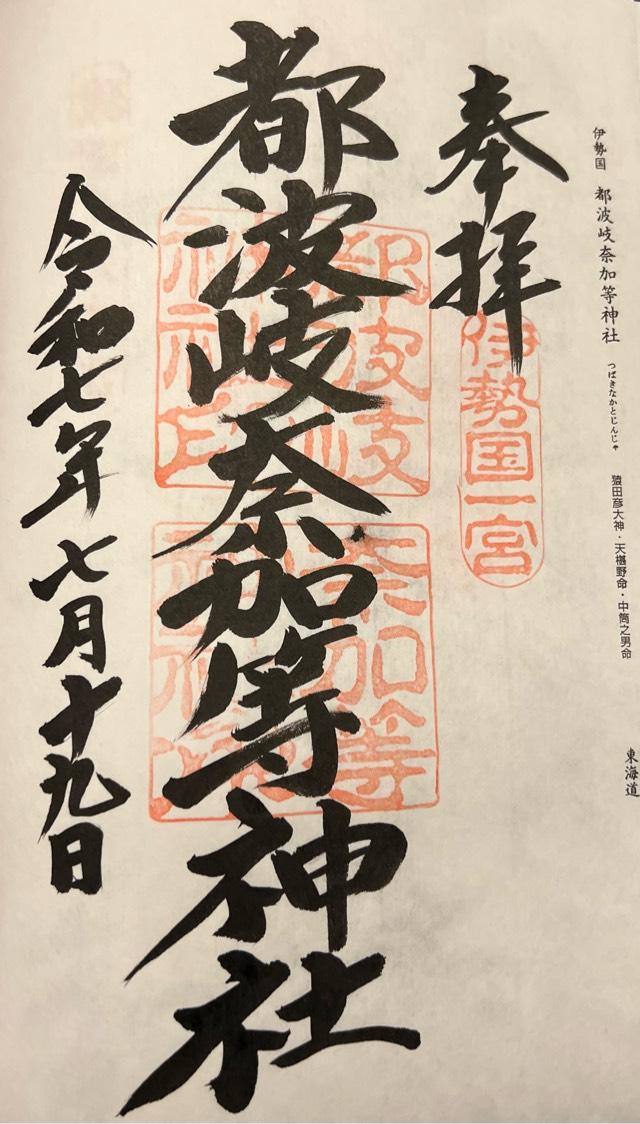 伊勢国 都波岐奈加等神社 つばきなかとじんじゃ 猿田彦大神・天椹野命・中筒之男命 東海道
奉拝
伊勢国一宮
都波岐奈加等神社
都波岐
神社印
奈加等
令和七年七月十九日